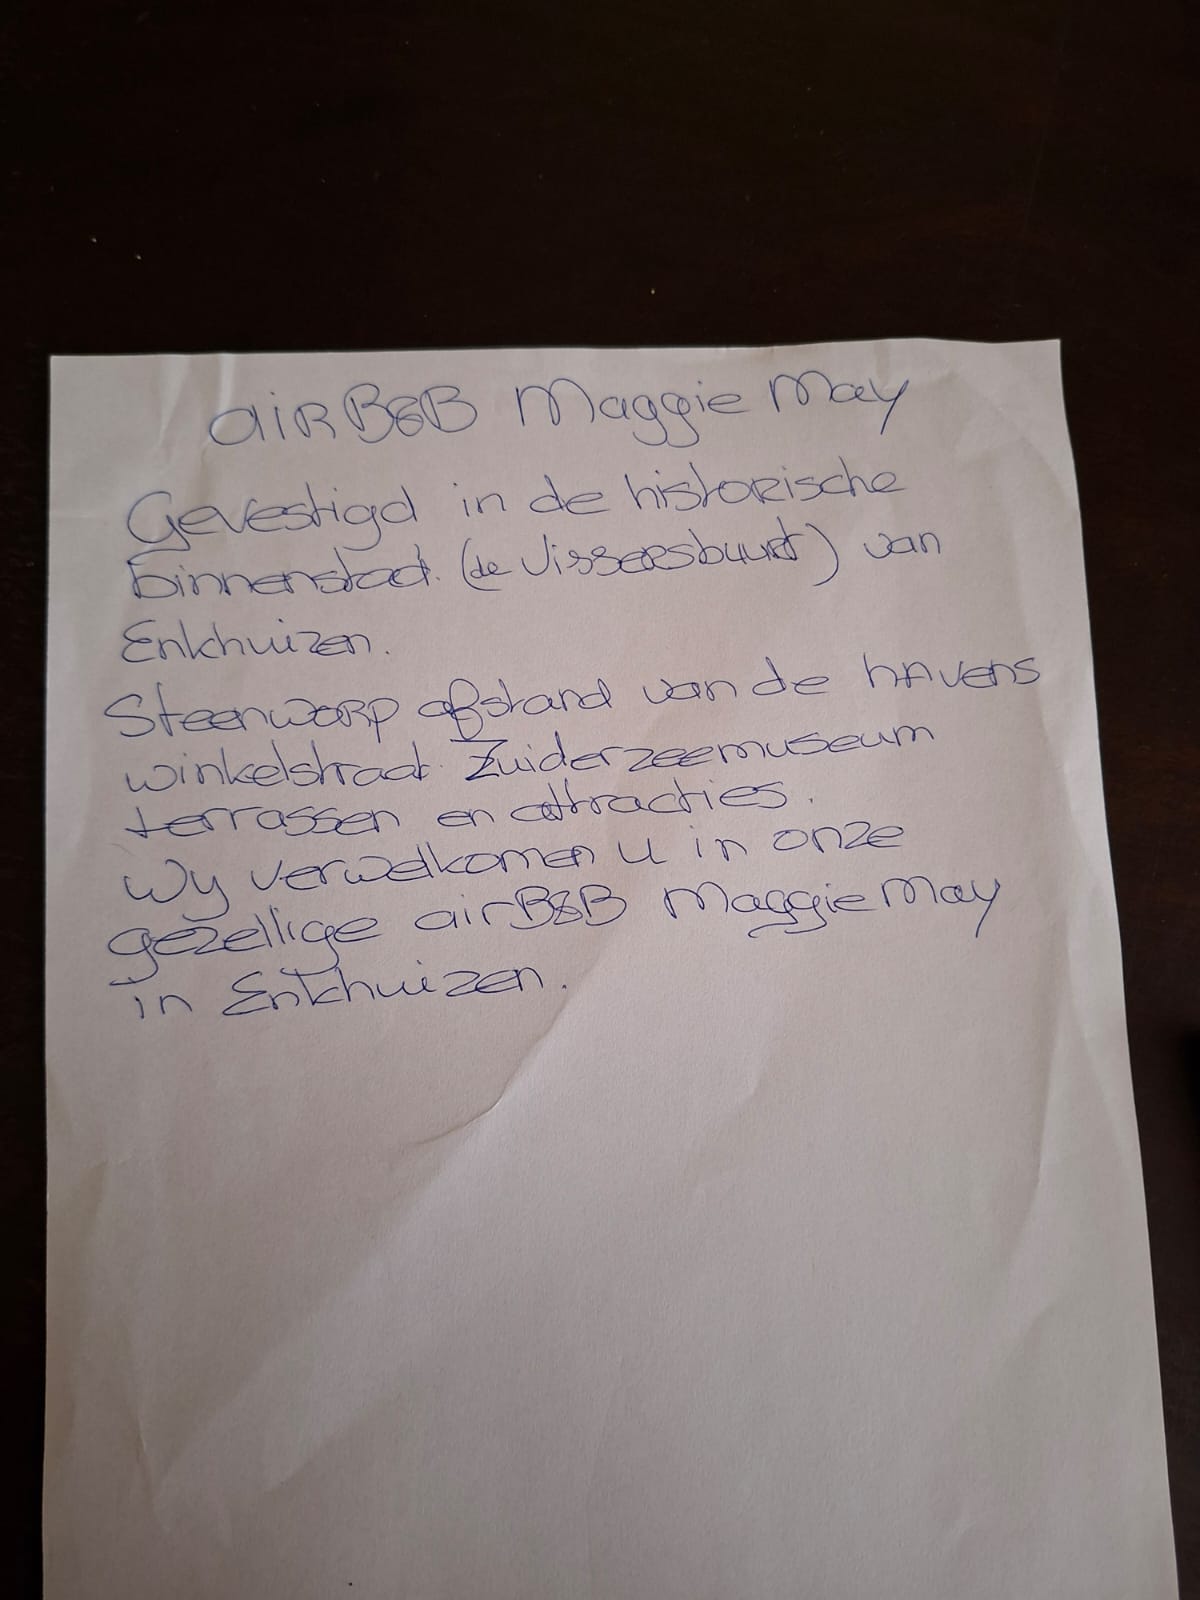 airB&B Maggie May
Gevestigd in de historische
binnenstad. (de Vissersbuurt) van
Enkhuizen.
Steenworp afstand van de havens
winkelstraat. Zuiderzeemuseum
terrassen en attracties.
Wij verwelkomen u in onze
gezellige airB&B Maggie May
in Enkhuizen.